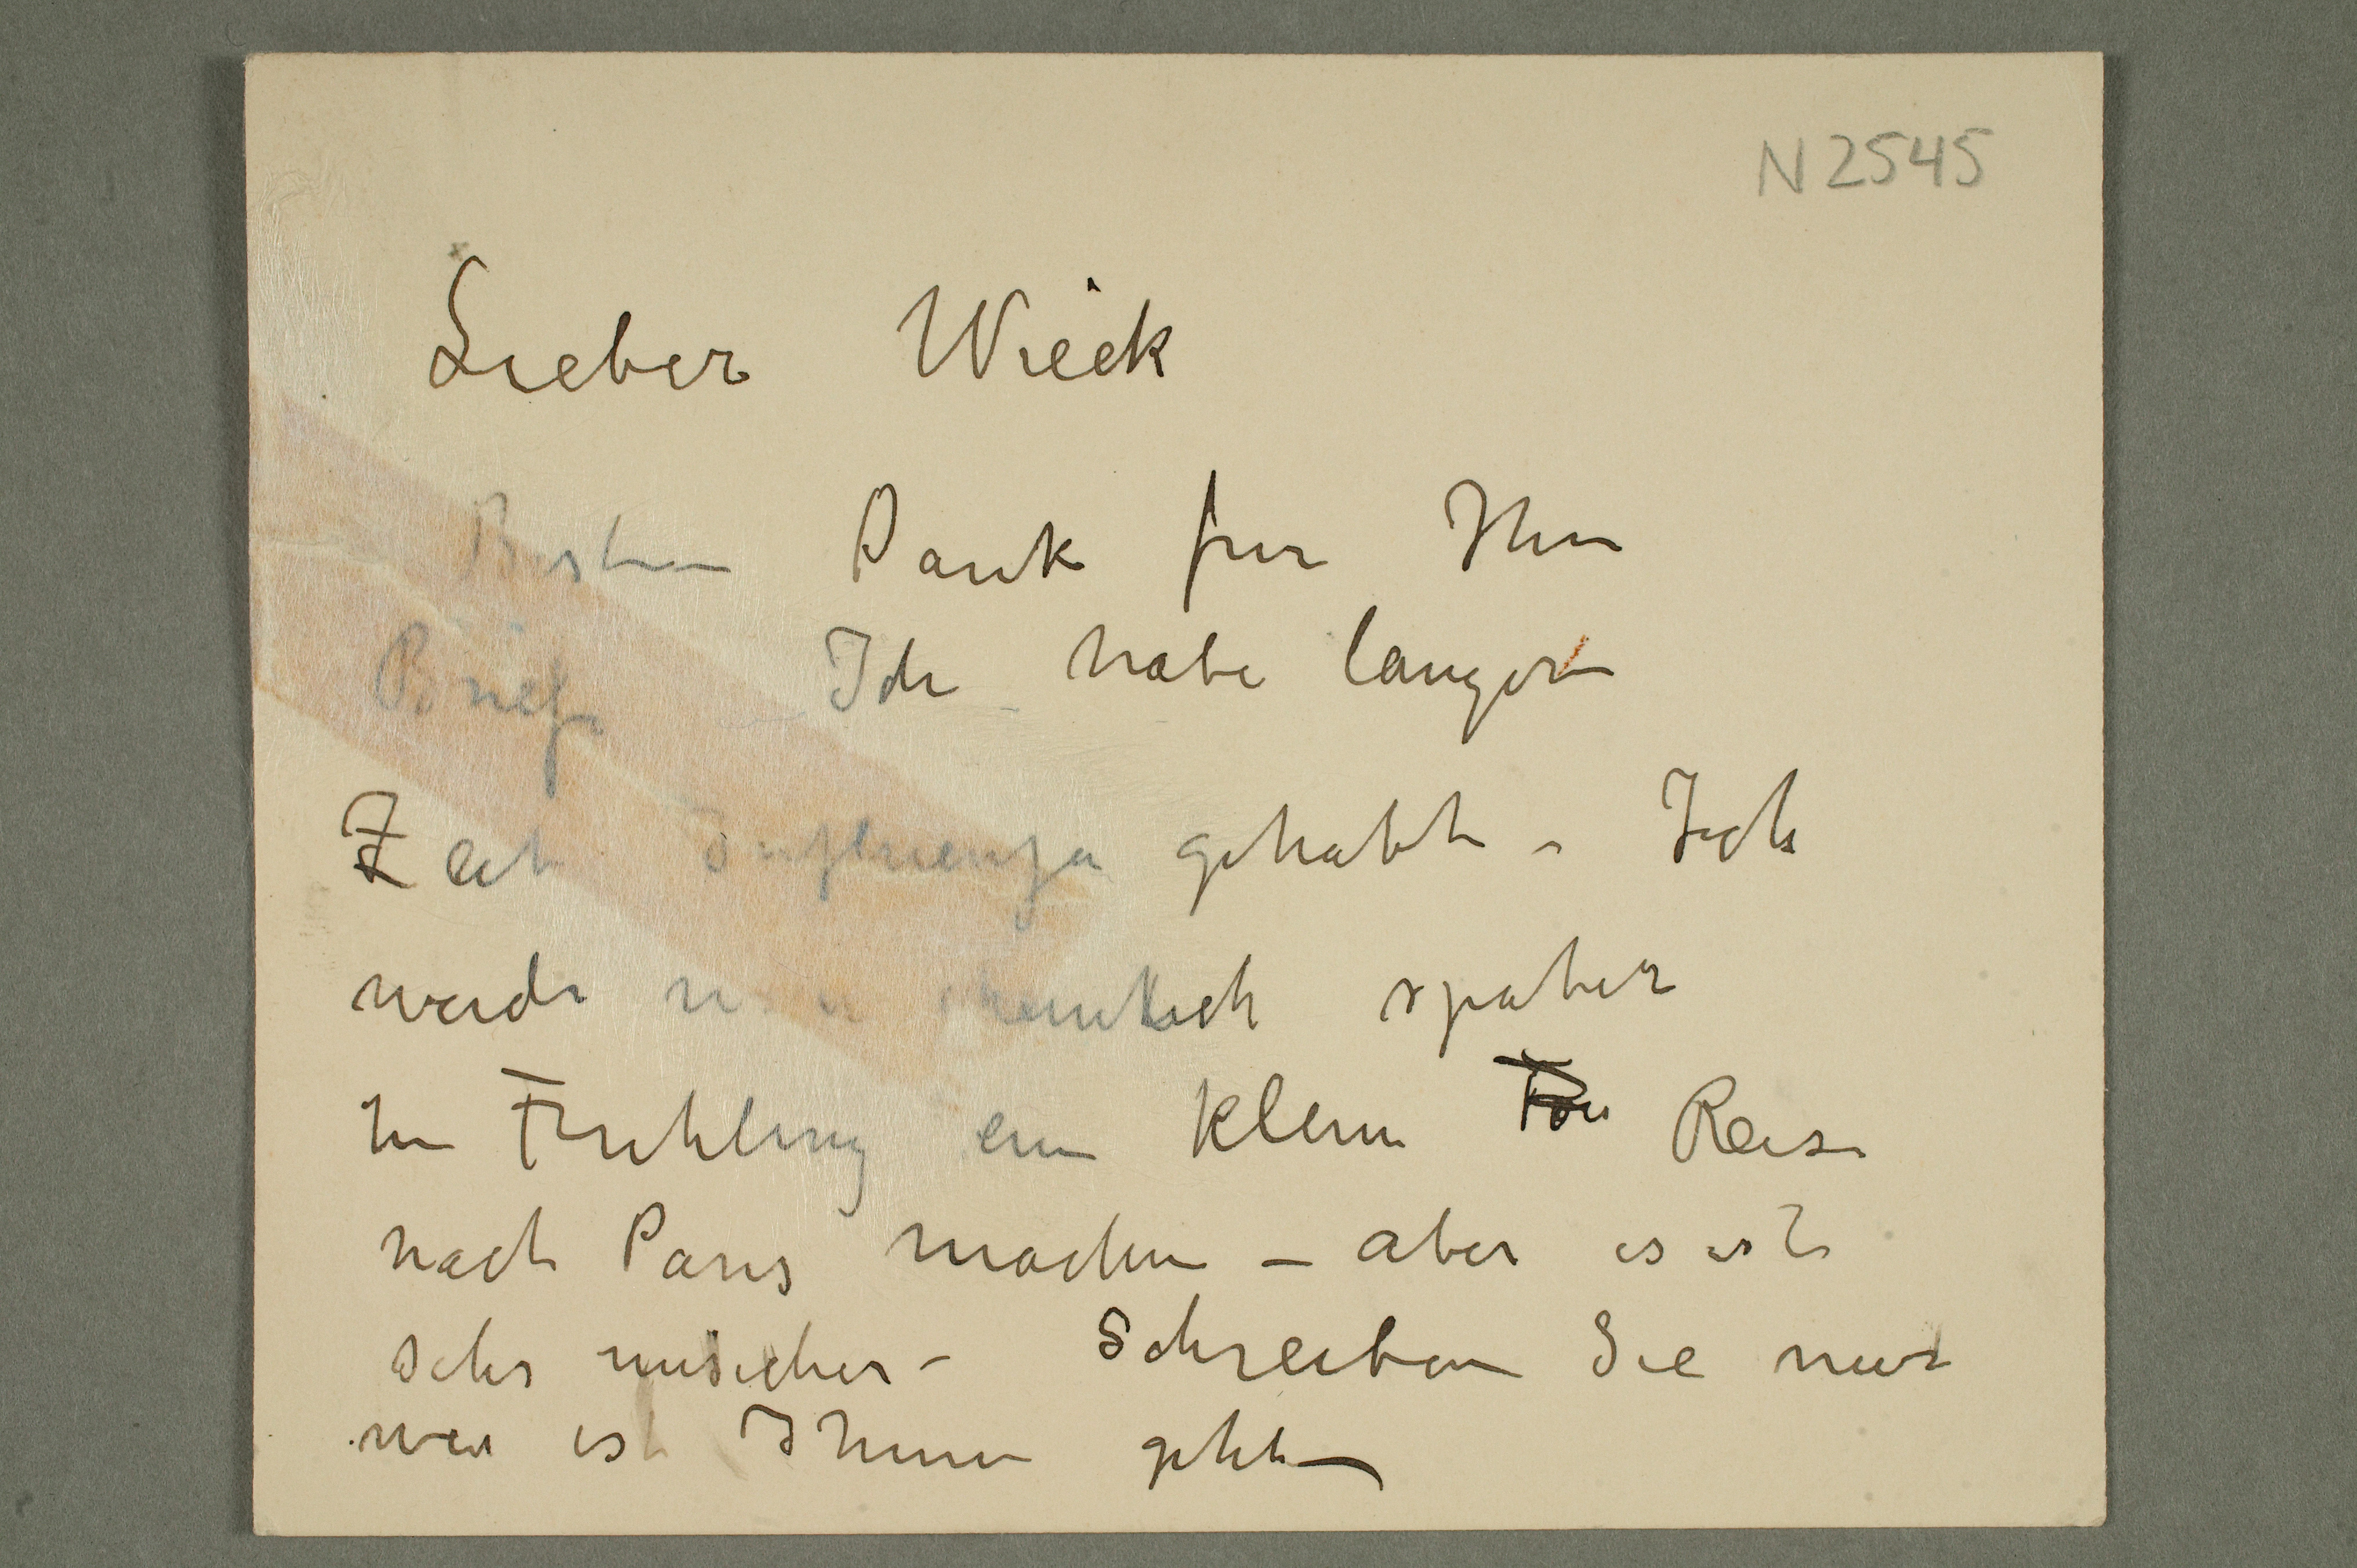 N 2545
Lieber Wieck
Besten Dank fur Ihren
Brief – Ich habe langere
Zeit Influenza gehabt – Ich
werde spater
im Fruhling eine kleine Reise
nach Paris machen – aber es ist
sehr unsicher – Schreiben Sie mir
wie es Ihnen geht